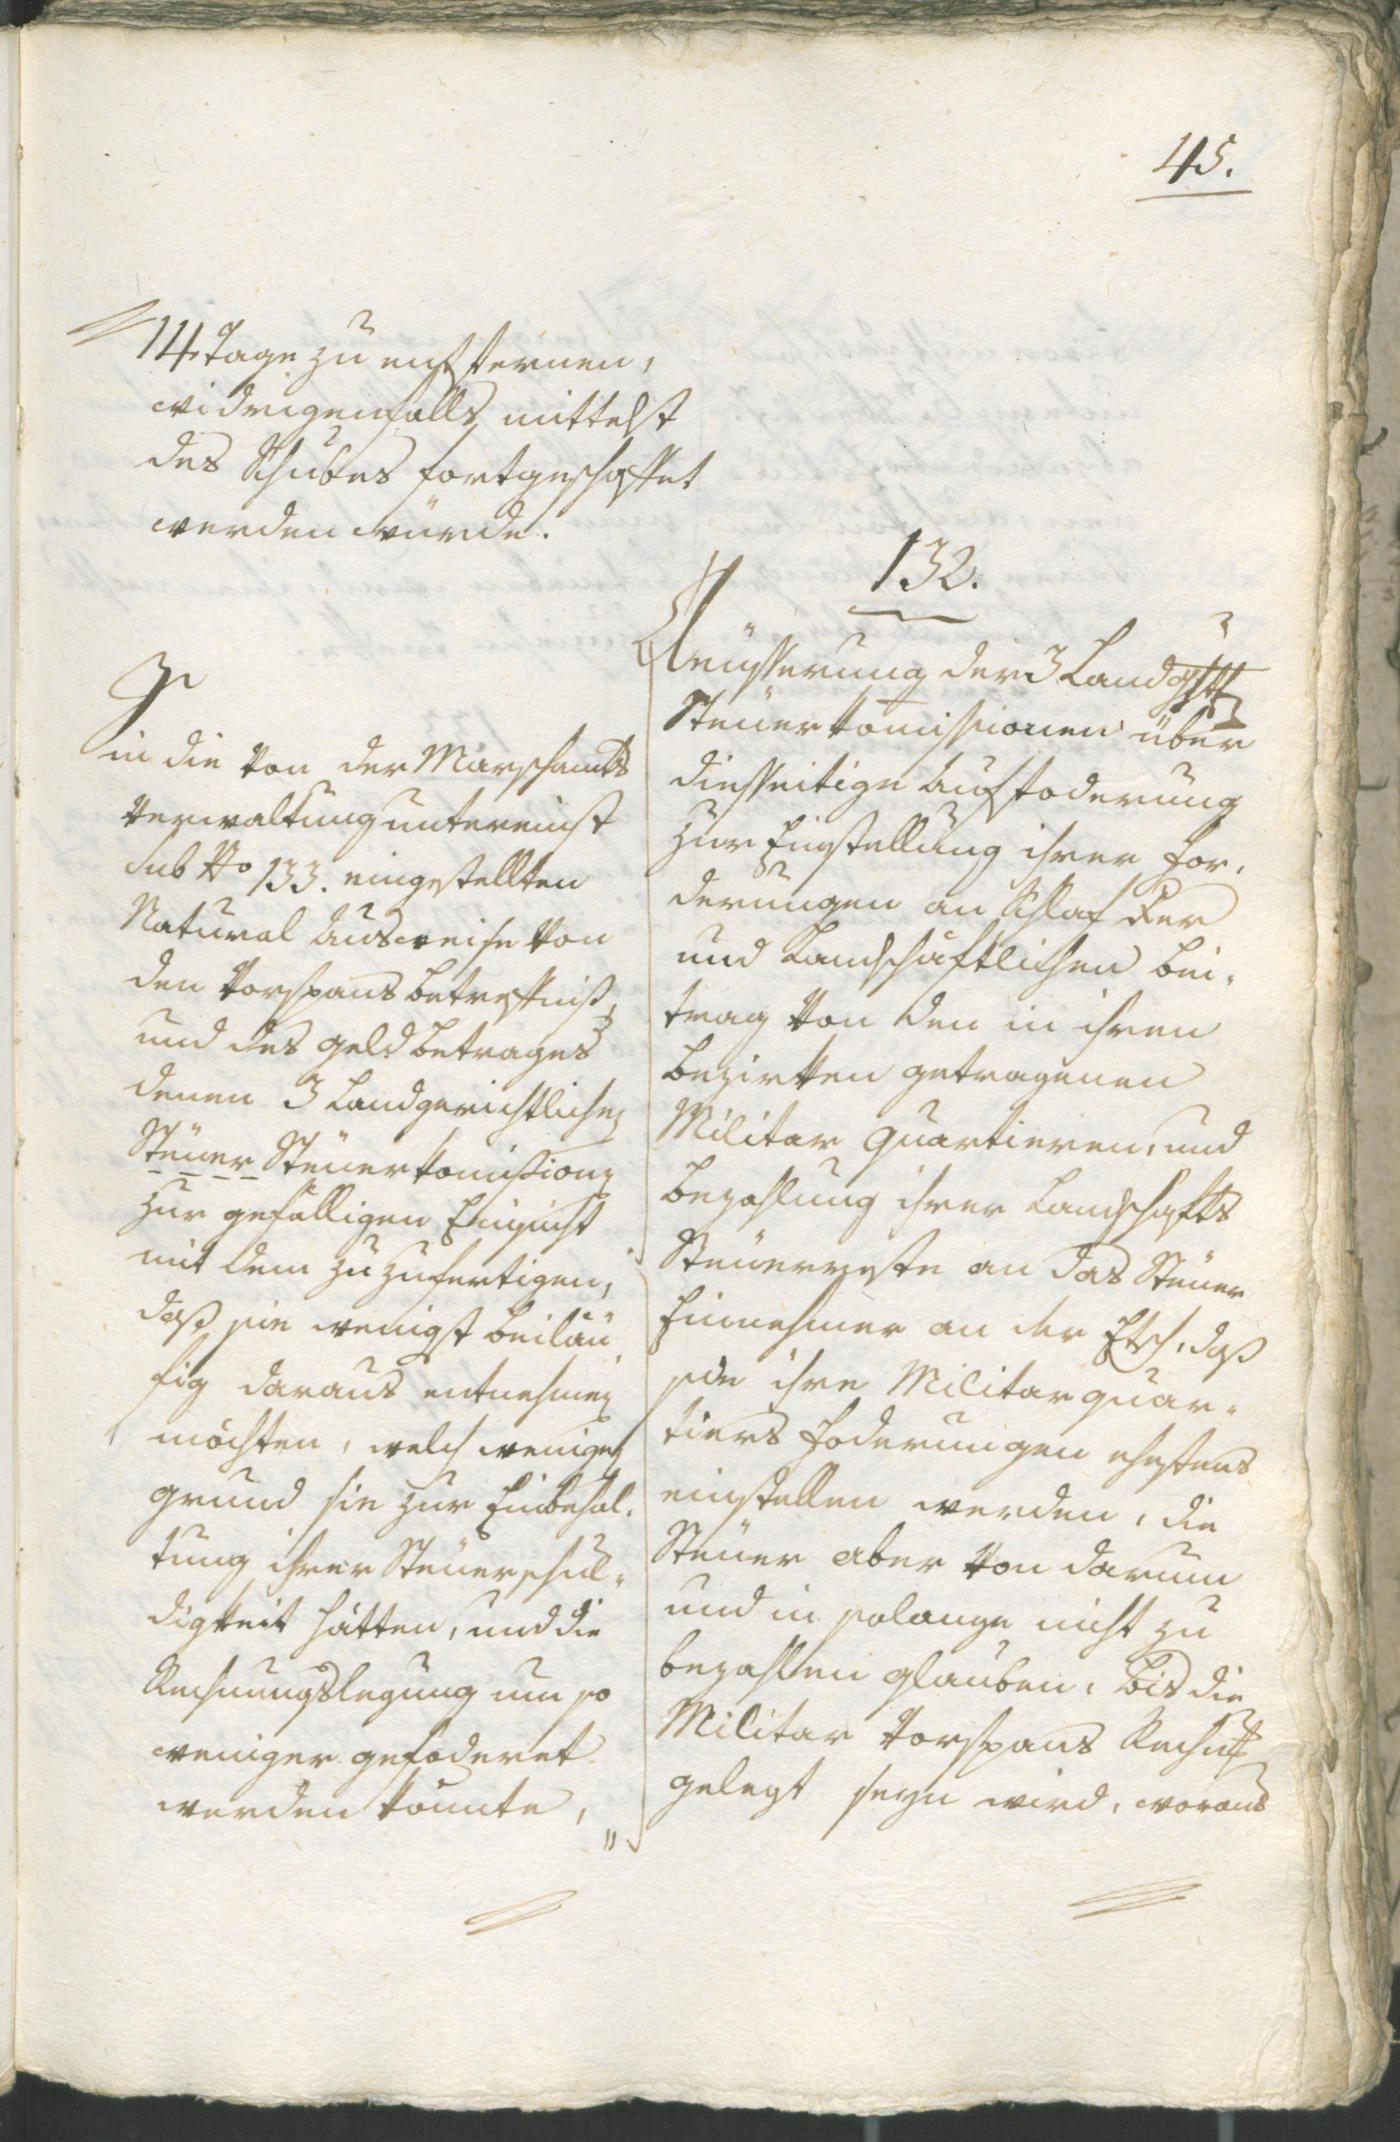 45.
14 Tage zu entfernen,
widrigenfalls mittelst
des Schubes fortgeschaffet
werden würde.
in die von der Marschamts
Verwaltung untereinst
sub No 133. eingestellten
Natural Ausweise von
den Vorspans Betreffniß,
und des Geldbetrages
denen 3 Landgerichtlichen
Steuer Steuerkomißionen
zur gefälligen Einsicht
mit dem zuzufertigen,
daß sie wenigst beiläu
fig daraus entnehmen
möchten, welch weniger
Grund sie zur Einbehal-
tung ihrer Steuerschul-
digkeit hätten, und die
Rechnungslegung um so
weniger gefoderet
werden könnte,
132.
Aeusserung der 3 Landgchtl
Steuerkomissionen über
diesseitige Auffoderung
zur Einstellung ihrer For-
derungen an Schlaf Xer
und Landschäftlichen Bei-
trag von den in ihren
Bezirken getragenen
Militar Quartieren, und
Bezahlung ihrer Landschafts
Steuerreste an das Steuer
Einnehmer an der Etsch, daß
sie ihre Militarquar-
tiers Foderungen ehestens
einstellen werden, die
Steuer aber von darum
und in solange nicht zu
bezahlen glauben, bis die
Militar Vorspans Rechng
gelegt seyn wird, woraus